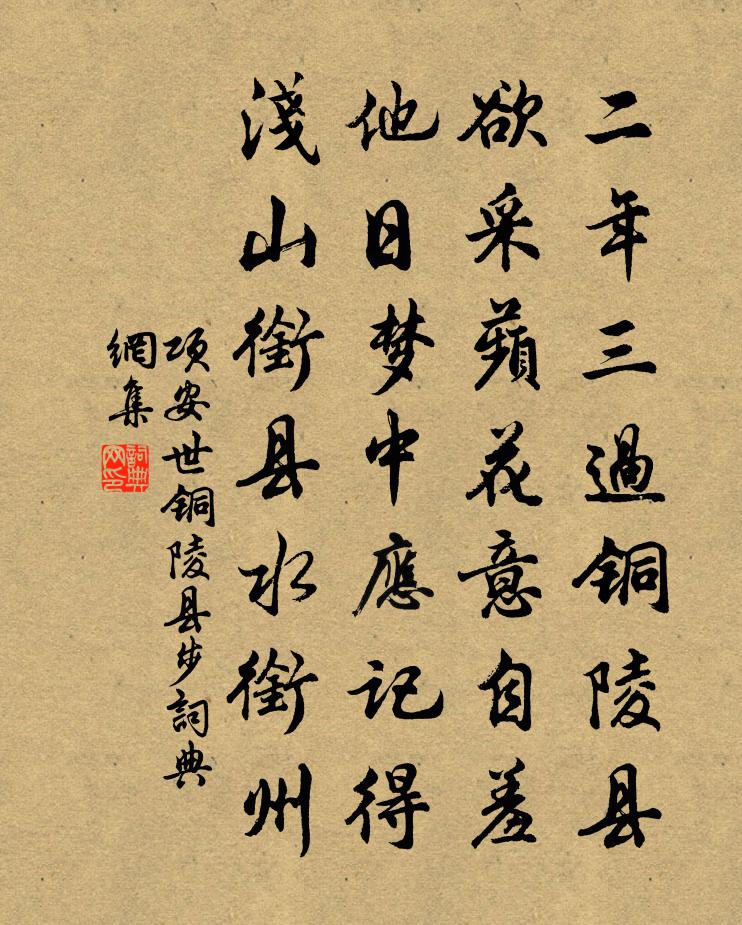 二年三過铜陵县
欲采蘋花意自羞
他日梦中應记得
淺山銜县水銜州
项安世铜陵县步詞典
網集
詞典
网印